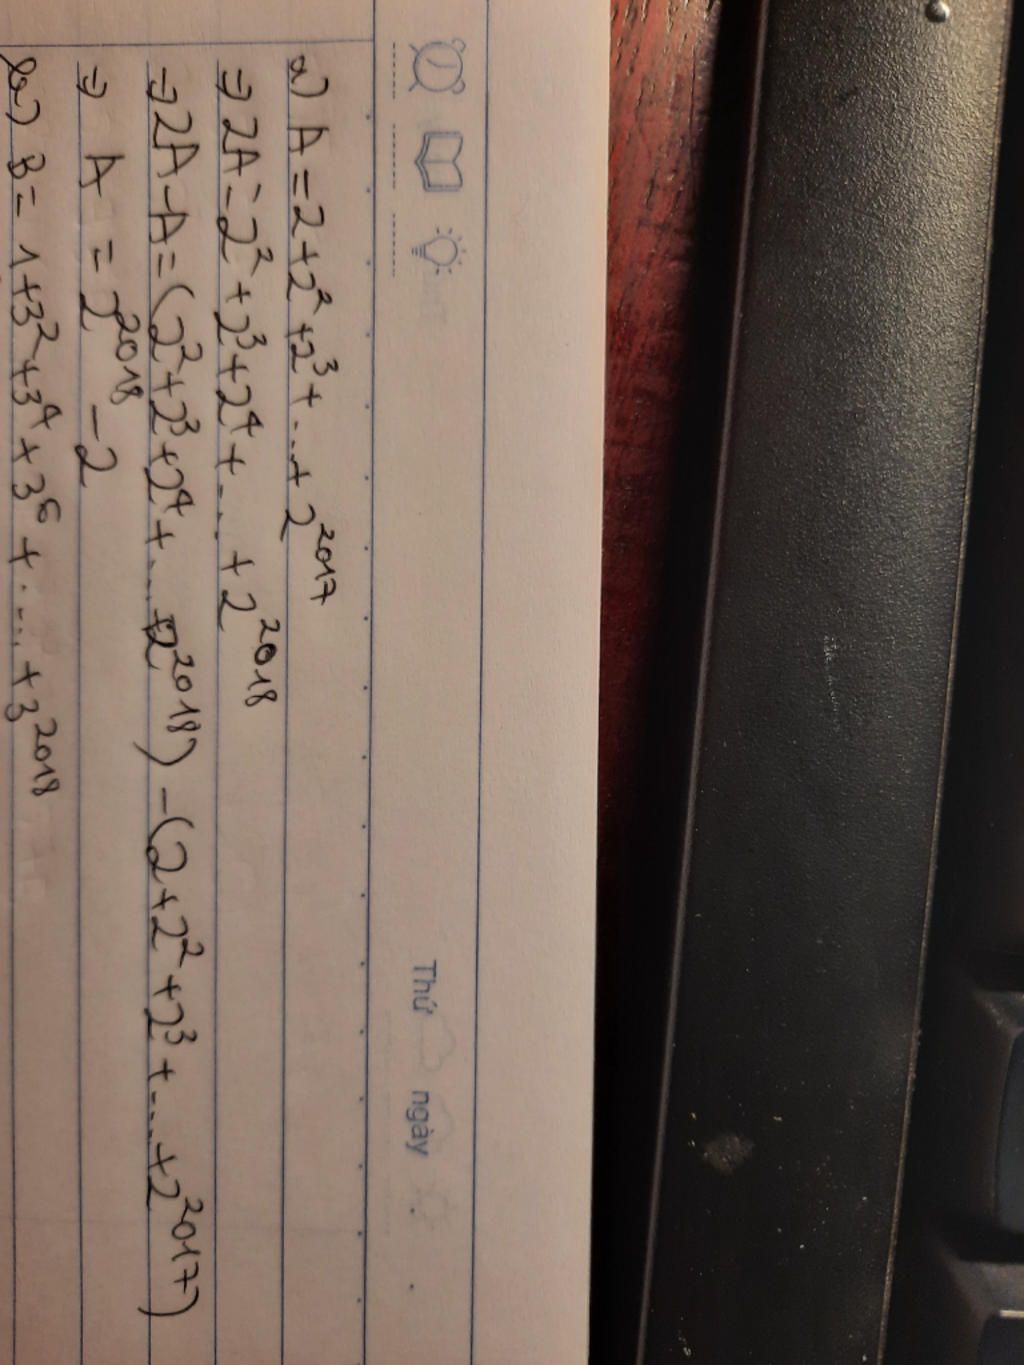 Thứ ngày
a) A = 2 + 2² + 2³ + ... + 2²⁰¹⁷
⇒ 2A = 2² + 2³ + 2⁴ + ... + 2²⁰¹⁸
⇒ 2A - A = (2² + 2³ + 2⁴ + ... + 2²⁰¹⁸) - (2 + 2² + 2³ + ... + 2²⁰¹⁷)
⇒ A = 2²⁰¹⁸ - 2
b) B = 1 + 3² + 3⁴ + 3⁶ + ... + 3²⁰¹⁸